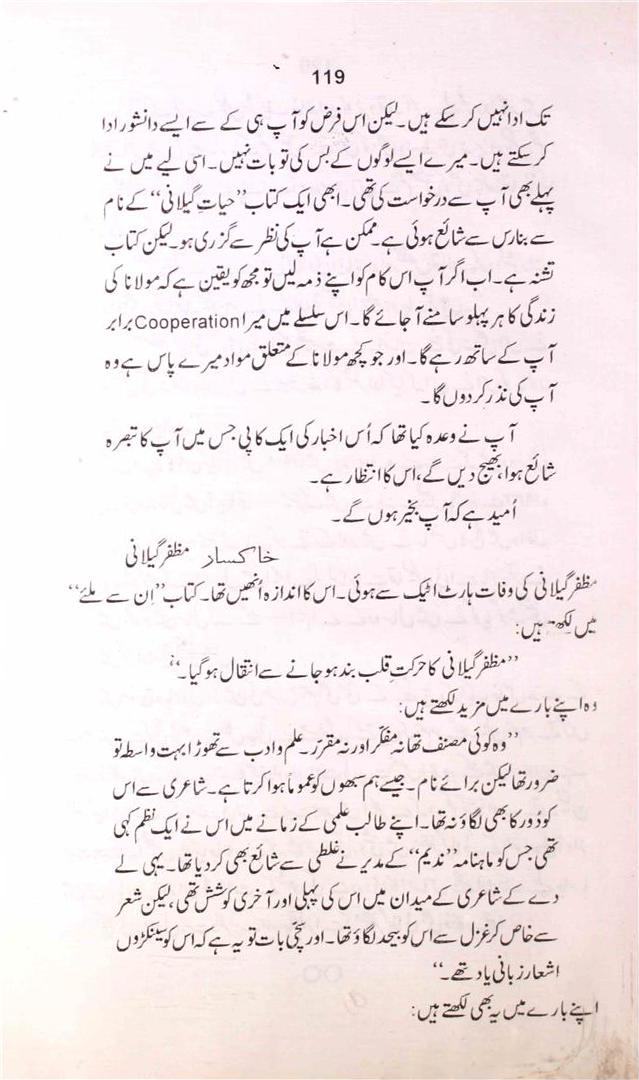 119
تک ادا نہیں کر سکے ہیں۔ لیکن اس فرض کو آپ ہی کے سے ایسے دانشور ادا
کر سکتے ہیں۔ میرے ایسے لوگوں کے بس کی تو بات نہیں۔ اسی لیے میں نے
پہلے بھی آپ سے درخواست کی تھی۔ ابھی ایک کتاب ”حیاتِ گیلانی“ کے نام
سے بنارس سے شائع ہوئی ہے۔ ممکن ہے آپ کی نظر سے گزری ہو۔ لیکن کتاب
تشنہ ہے۔ اب اگر آپ اس کام کو اپنے ذمہ لیں تو مجھ کو یقین ہے کہ مولانا کی
زندگی کا ہر پہلو سامنے آجائے گا۔ اس سلسلے میں میرا Cooperation برابر
آپ کے ساتھ رہے گا۔ اور جو کچھ مولانا کے متعلق مواد میرے پاس ہے وہ
آپ کی نذر کردوں گا۔
آپ نے وعدہ کیا تھا کہ اُس اخبار کی ایک کاپی جس میں آپ کا تبصرہ
شائع ہوا، بھیج دیں گے، اس کا انتظار ہے۔
اُمید ہے کہ آپ بخیر ہوں گے۔
خاکسار مظفر گیلانی
مظفر گیلانی کی وفات ہارٹ اٹیک سے ہوئی۔ اس کا اندازہ اُنھیں تھا۔ کتاب ”اِن سے ملئے“
میں لکھتے ہیں:
”مظفر گیلانی کا حرکتِ قلب بند ہو جانے سے انتقال ہو گیا۔“
وہ اپنے بارے میں مزید لکھتے ہیں:
”وہ کوئی مصنف تھا نہ مفکّر اور نہ مقرّر۔ علم و ادب سے تھوڑا بہت واسطہ تو
ضرور تھا لیکن برائے نام۔ جیسے ہم سبھوں کو عموماً ہوا کرتا ہے۔ شاعری سے اس
کو دُور کا بھی لگاؤ نہ تھا۔ اپنے طالب علمی کے زمانے میں اس نے ایک نظم کہی
تھی جس کو ماہنامہ ”ندیم“ کے مدیر نے غلطی سے شائع بھی کر دیا تھا۔ یہی لے
دے کے شاعری کے میدان میں اس کی پہلی اور آخری کوشش تھی، لیکن شعر
سے خاص کر غزل سے اس کو بیحد لگاؤ تھا۔ اور سچّی بات تو یہ ہے کہ اس کو سینکڑوں
اشعار زبانی یاد تھے۔“
اپنے بارے میں یہ بھی لکھتے ہیں: